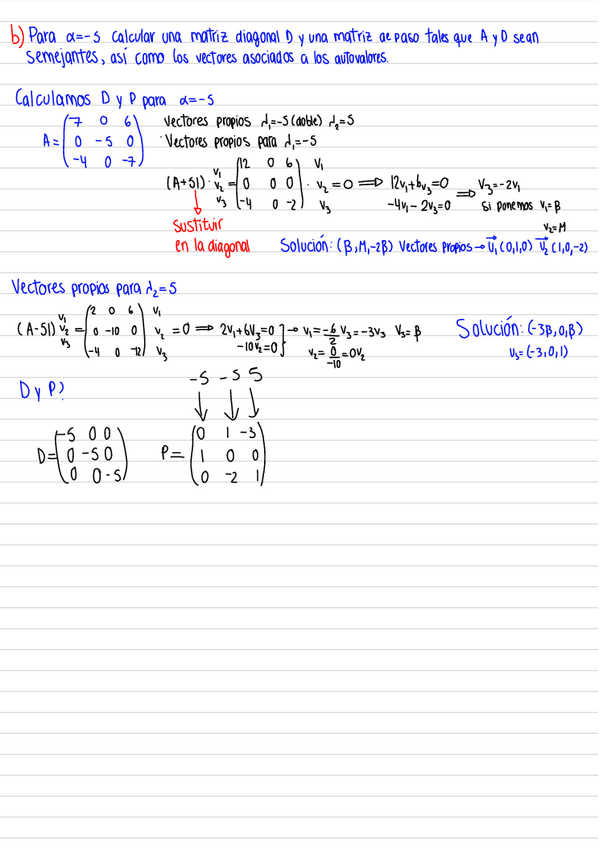 b) Para α=-5 calcular una matriz diagonal D y una matriz de paso tales que A y D sean
semejantes, así como los vectores asociados a los autovalores.
Calculamos D y P para α=-5
A= (7 0 6 / 0 -5 0 / -4 0 -7) Vectores propios λ₁=-5 (doble) λ₂=5
· Vectores propios para λ₁=-5
(A+5I)· v₁ v₂ v₃ = (12 0 6 / 0 0 0 / -4 0 -2) · v₁ v₂ v₃ =0 ⟹ 12v₁+6v₃=0 -4v₁-2v₃=0 ⟹ v₃=-2v₁ si ponemos v₁=β v₂=M
sustituir
en la diagonal
Solución: (β,M,-2β) Vectores propios → u₁(0,1,0) u₂(1,0,-2)
Vectores propios para λ₂=5
(A-5I) v₁ v₂ v₃ = (2 0 6 / 0 -10 0 / -4 0 -12) v₁ v₂ v₃ =0 ⟹ 2v₁+6v₃=0 -10v₂=0 } → v₁=-6/2 v₃=-3v₃ v₃=β v₂=0/-10=0v₂ Solución: (-3β,0,β)
u₃=(-3,0,1)
D y P?
-5 -5 5
D= (-5 0 0 / 0 -5 0 / 0 0 -5) P= (0 1 -3 / 1 0 0 / 0 -2 1)